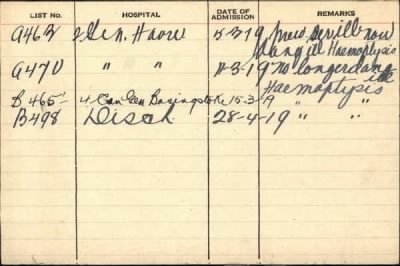 LIST NO. HOSPITAL DATE OF ADMISSION REMARKS
A463 2 Gen. Havre 5-3-19 Prev. Seville now
dang ill Haemoptysis
A470 " " 11-3-19 No longer dang
ill
Haemoptysis
B465 4 Can Gen Basingstoke 15-3-19 " "
B498 Disch 28-4-19 " "